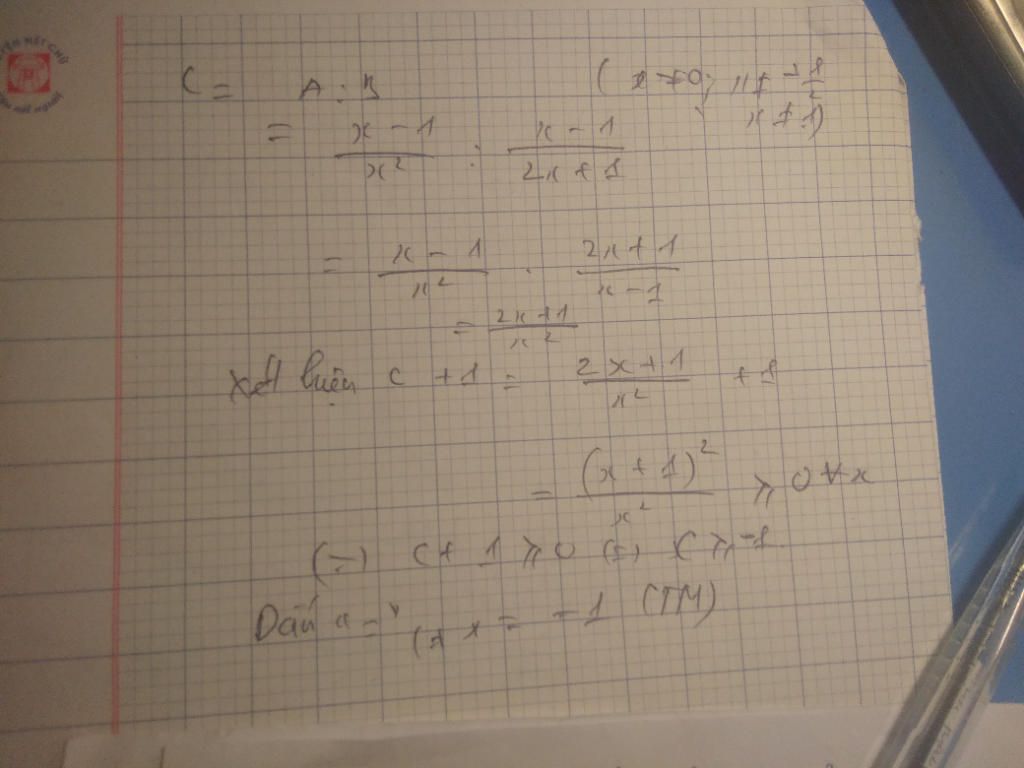 C = A : B ( x ≠ 0; x ≠ -1/2
x ≠ 1)
= (x - 1)/x² : (x - 1)/(2x + 1)
= (x - 1)/x² . (2x + 1)/(x - 1)
= (2x + 1)/x²
Xét hiệu C + 1 = (2x + 1)/x² + 1
= (x + 1)²/x² ≥ 0 ∀x
(=) C + 1 ≥ 0 (=) C ≥ -1
Dấu "=" (=) x = -1 (TM)